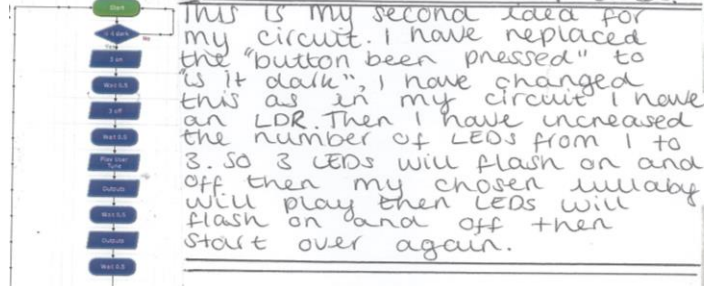 Start
is it dark
No
Yes
3 on
Wait 0.5
3 off
Wait 0.5
Play User
Tune
Outputs
Wait 0.5
Outputs
Wait 0.5
This is my second idea for
my circuit. I have replaced
the "button been pressed" to
"is it dark", I have changed
this as in my circuit I have
an LDR. Then I have increased
the number of LEDs from 1 to
3. So 3 LEDs will flash on and
off then my chosen lullaby
will play then LEDs will
flash on and off then
start over again.